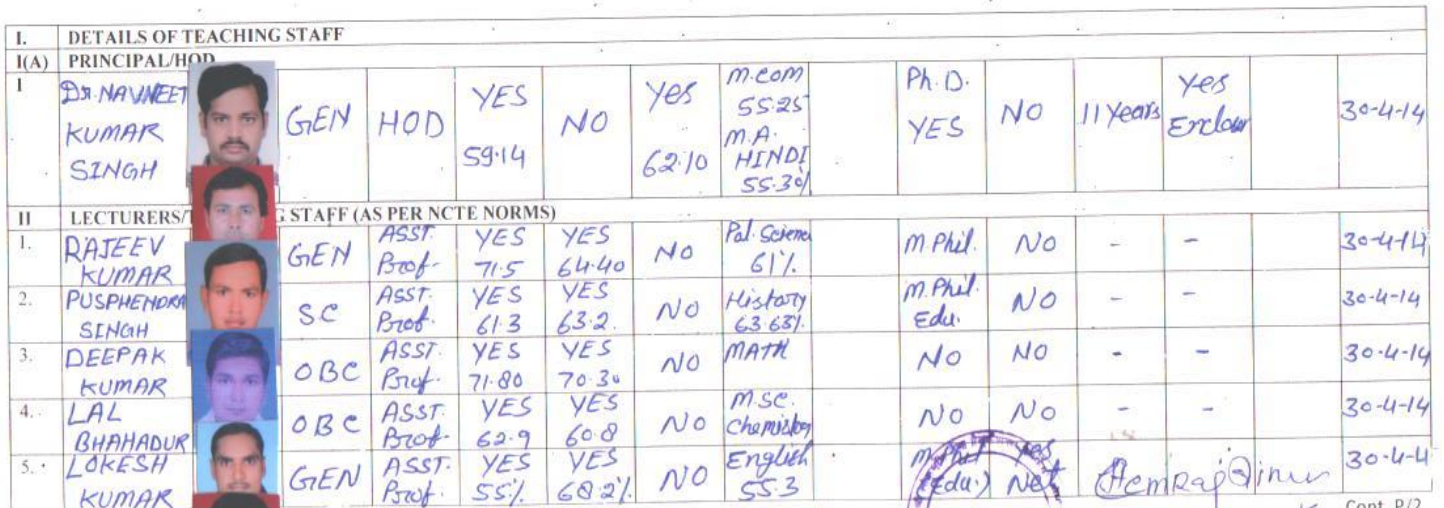 I. DETAILS OF TEACHING STAFF
I(A) PRINCIPAL/HOD
1 DR. NAVNEET KUMAR SINGH GEN HOD YES 59.14 NO Yes 62.10 M.COM 55.25 M.A. HINDI 55.3% Ph.D. YES NO 11 Years Yes 30-4-14
II LECTURERS/ STAFF (AS PER NCTE NORMS)
1. RAJEEV KUMAR GEN ASST. Prof. YES 71.5 YES 64.40 NO Pol. Science 61% M.Phil. NO - - 30-4-14
2. PUSPHENDRA SINGH SC ASST. Prof. YES 61.3 YES 63.2. NO History 63.63% M.Phil. Edu. NO - - 30-4-14
3. DEEPAK KUMAR OBC ASST. Prof. YES 71.80 YES 70.30 NO MATH NO NO - - 30-4-14
4. LAL BHAHADUR OBC ASST. Prof. YES 62.9 YES 60.8 NO M.SC. Chemistry NO NO - - 30-4-14
5. LOKESH KUMAR GEN ASST. Prof. YES 55% YES 68.2% NO English 55.3 M.Phil (Edu.) Yes Net 30-4-4
Cont. P/2